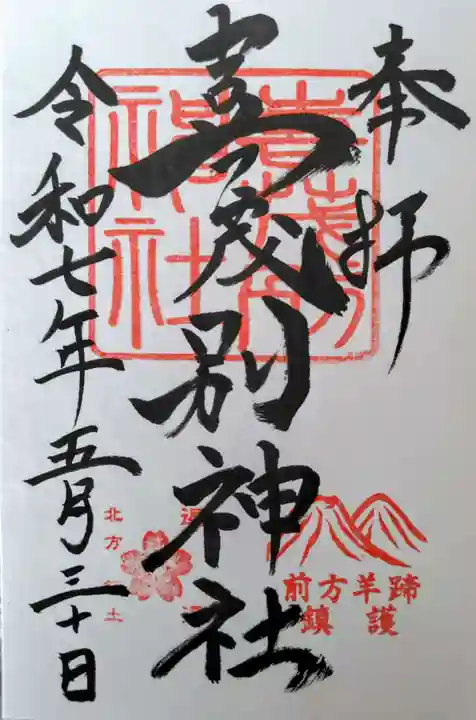 奉拝
喜茂別神社
令和七年五月三十日
喜茂別
神社
前方羊蹄
鎮護
北方
土